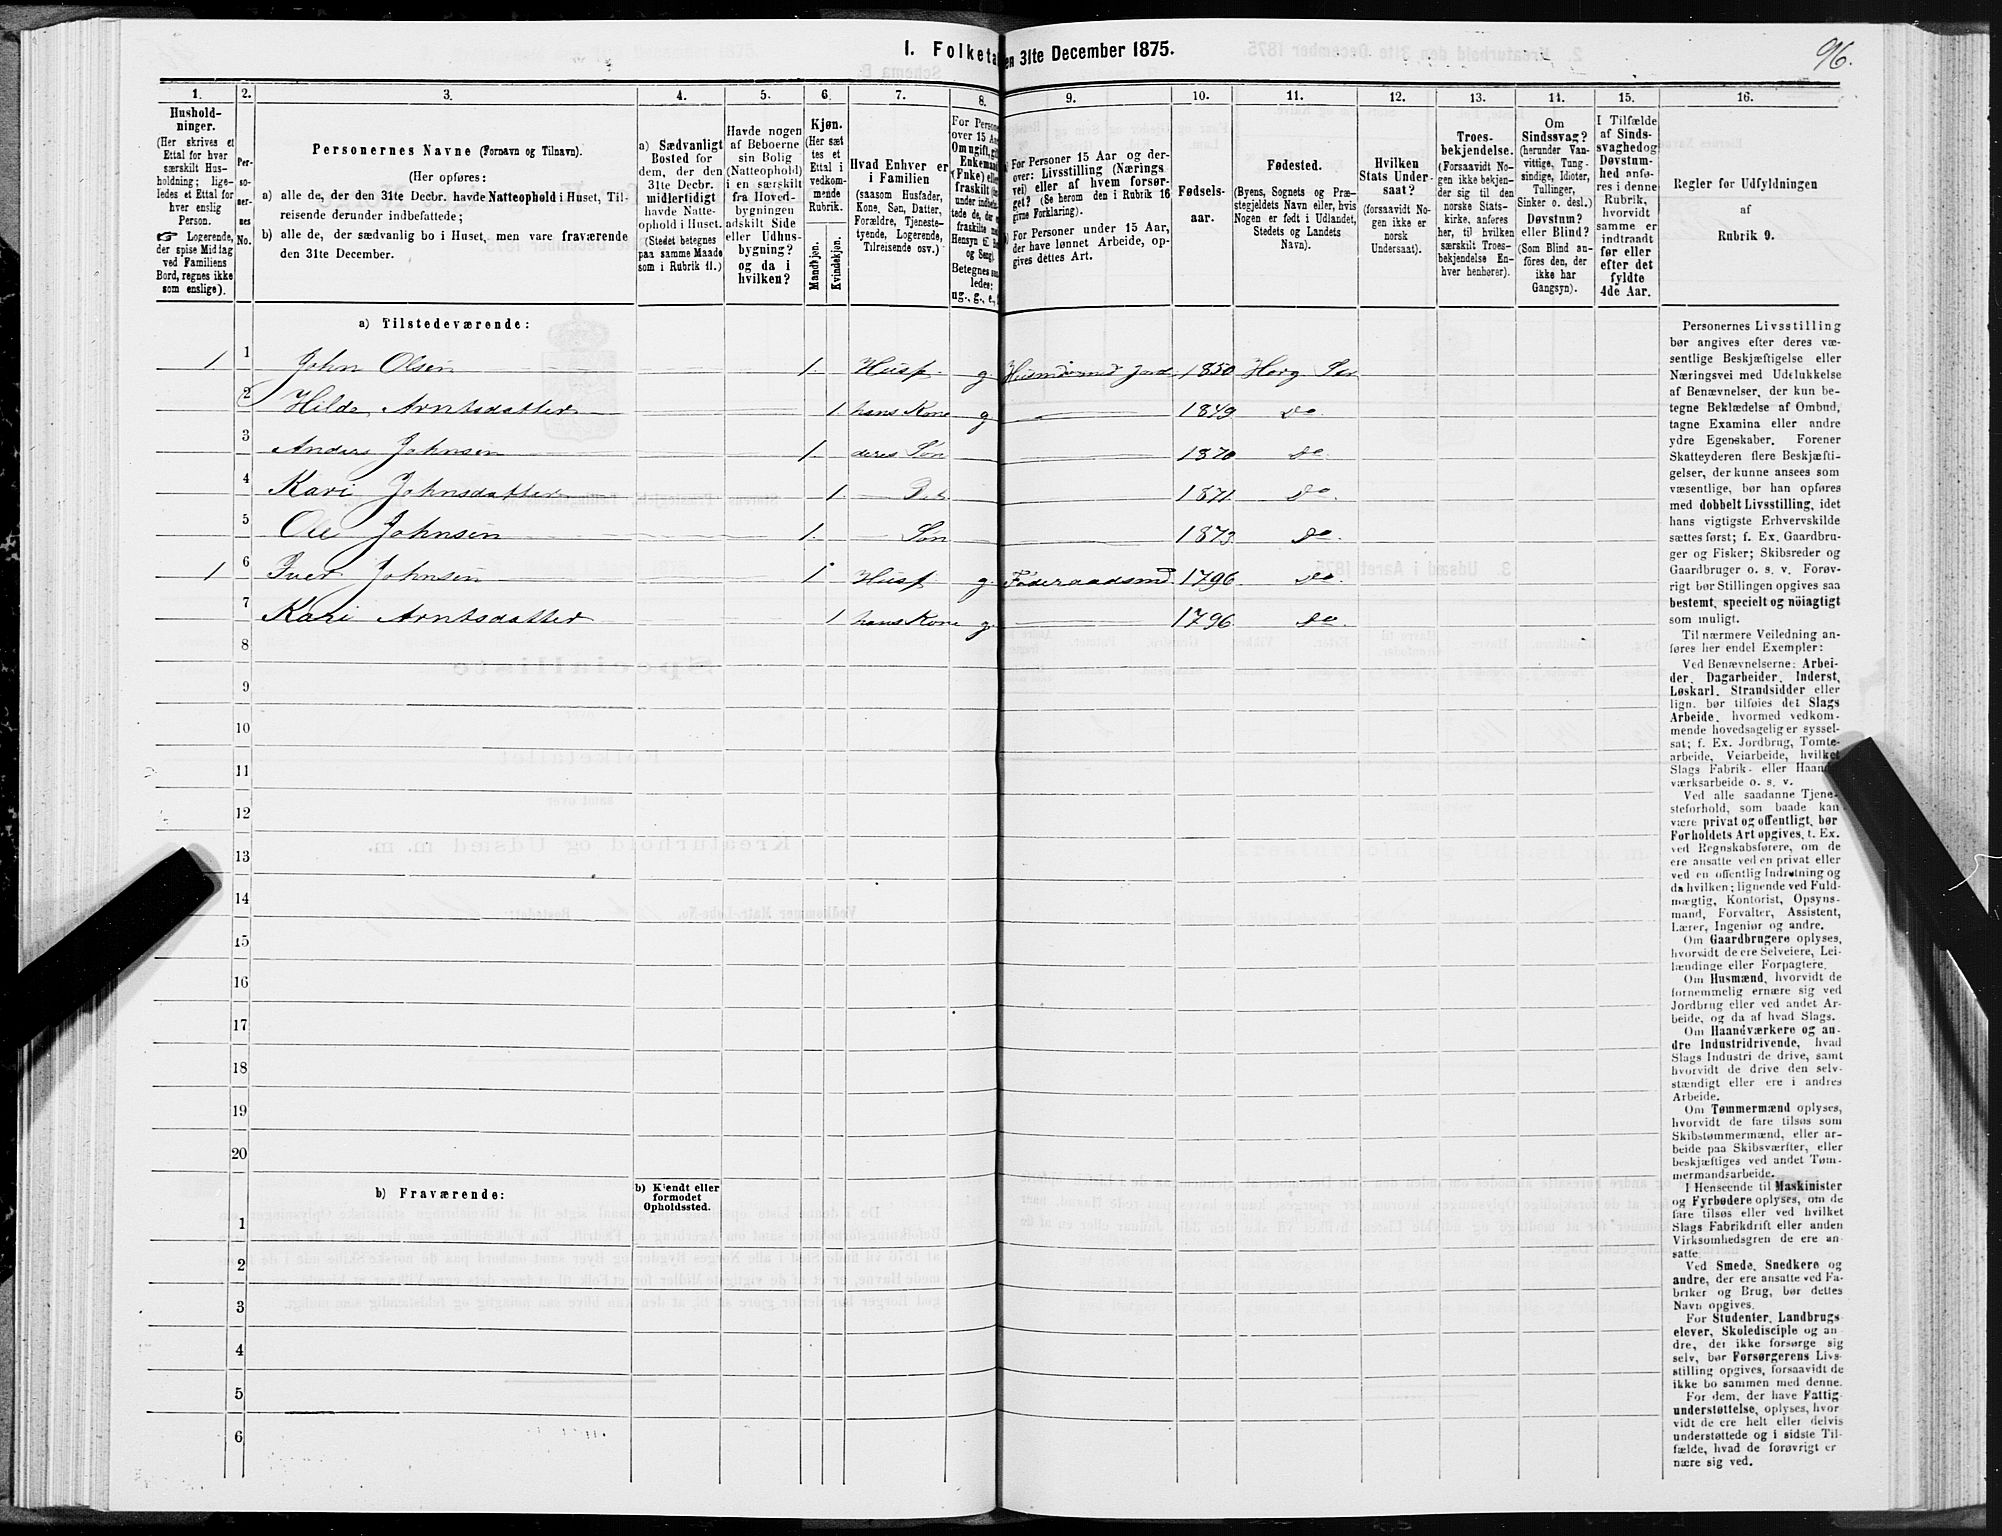 96.
I. Folketa en 31te December 1875.
1. 2. 3. 4. 5. 6. 7. 8. 9. 10. 11. 12. 13. 14. 15. 16.
Hushold-
ninger.
(Her skrives et
Ettal for hver
særskilt Hus-
holdning; lige-
ledes et Ettal for
hver enslig
Person.
☞ Logerende,
der spise Middag
ved Familiens
Bord, regnes ikke
som enslige).
Per-
so-
ner-
nes
No.
Personernes Navne (Fornavn og Tilnavn).
(Her opføres:
a) alle de, der den 31te Decbr. havde Natteophold i Huset, Til-
reisende derunder indbefattede;
b) alle de, der sædvanlig bo i Huset, men vare fraværende
den 31te December.
a) Sædvanligt
Bosted for
dem, der den
31te Decbr.
midlertidigt
havde Natte-
ophold i Huset.
(Stedet betegnes
paa samme Maade
som i Rubrik 11.)
Havde nogen
af Beboerne
sin Bolig
(Natteophold)
i en særskilt
fra Hoved-
bygningen
adskilt Side
eller Udhus-
bygning?
og da i
hvilken?
Kjøn.
(Her sæt
tes et
Ettal i
vedkom-
mende
Rubrik.
Mandkjøn.
Kvindekjøn.
Hvad Enhver er
i Familien
(saasom Husfader,
Kone, Søn, Datter,
Forældre, Tjeneste-
tyende, Logerende,
Tilreisende osv.)
For Persone
over 15 Aar
Om ugift, gift
Enkemand
(Enke) eller
fraskilt
Betegnes saa
ledes:
ug., g., e.,
For Personer 15 Aar og der-
over: Livsstilling (Nærings
vei) eller af hvem forsør-
get? (Se herom den i Rubrik 16
givne Forklaring).
b) For Personer under 15 Aar,
der have lønnet Arbeide, op-
gives dettes Art.
Fødsels-
aar.
Fødested.
(Byens, Sognets og Præ-
stegjeldets Navn eller, hvis
Nogen er født i Udlandet,
Stedets og Landets
Navn).
Hvilken
Stats Under-
saat?
(forsaavidt No-
gen ikke er
norsk
Undersaat).
Troes-
bekjendelse.
(Forsaavidt No-
gen ikke bekjen-
der sig til den
norske Stats-
kirke, anføres
her, til hvilken
særskilt Troes-
bekjendelse En-
hver henhører).
Om
Sindssvag?
(herunder Van-
vittige, Tung-
sindige, Idioter,
Tullinger,
Sinker o. desl.)
Døvstum?
eller Blind?
(Som Blind an-
føres den, der
ikke har
Gangsyn).
I Tilfælde
af Sinds-
svaghed og
Døvstum-
hed anfø-
res i denne
Rubrik,
hvorvidt
samme er
indtraadt
før eller
efter det
fyldte
4de Aar.
Regler for Udfyldningen
af
Rubrik 9.
a) Tilstedeværende:
1 1 John Olsen 1. Husf. g. Husmd. med Jord 1850 Horg
2 Hilde Arntsdatter 1 hans Kone g 1849 Do
3 Anders Johnsen 1. deres Søn 1870 Do.
4 Kari Johnsdatter 1. 1871. Do
5 Ole Johnsen 1. Søn 1873 Do.
1 6 Iver Johnsen 1 Husf g. Føderaadsmd. 1796 Do
7 Kari Arntsdatter 1 hans Kone g. 1796 Do.
8
9
10
11
12
13
14
15
16
17
18
19
20
b) Fraværende:
b) Kjendt eller
formodet
Opholdssted.
1
2
3
4
5
6
Personernes Livsstilling
bør angives efter deres væ-
sentlige Beskjæftigelse eller
Næringsvei med Udelukkelse
af Benævnelser, der kun be-
tegne Beklædelse af Ombud,
tagne Examina eller andre
ydre Egenskaber. Forener
Skatteyderen flere Beskjæfti-
gelser, der kunne ansees som
væsentlige, bør han opføres
med dobbelt Livsstilling, idet
hans vigtigste Erhvervskilde
sættes først; f. Ex. Gaardbru-
ger og Fisker; Skibsreder og
Gaardbruger o. s. v. Forøv-
rigt bør Stillingen opgives saa
bestemt, specielt og nöiagtigt
som muligt.
Til nærmere Veiledning an-
føres her endel Exempler:
Ved Benævnelserne: Arbei-
der, Dagarbeider, Inderst,
Løskarl, Strandsidder eller
lign. bør tilføies det Slags
Arbeide, hvormed vedkom-
mende hovedsagelig er syssel-
sat; f. Ex. Jordbrug, Tomte-
arbeide, Veiarbeide, hvilket
Slags Fabrik- eller Haand-
værksarbeide o. s. v.
Ved alle saadanne Tjene-
steforhold, som baade kan
være privat og offentligt, bør
Forholdets Art opgives, t. Ex.
ved Regnskabsførere, om de
ere ansatte ved en privat eller
ved en offentlig Indretning og
da hvilken; lignende ved Fuld-
mægtig, Kontorist, Opsyns-
mand, Forvalter, Assistent,
Lærer, Ingeniør og andre.
Om Gaardbrugere oplyses,
hvorvidt de ere Selveiere, Lei-
lændinge eller Forpagtere.
Om Husmænd, hvorvidt de
fornemmelig ernære sig ved
Jordbrug eller ved andet Ar-
beide, og da af hvad Slags.
Om Haandværkere og an-
dre Industridrivende, hvad
Slags Industri de drive, samt
hvorvidt de drive den selv-
stændigt eller ere i andres
Arbeide.
Om Tømmermænd oplyses,
hvorvidt de fare tilsøs som
Skibstømmermænd, eller ar-
beide paa Skibsværfter, eller
beskjæftiges ved andet Tøm-
mermandsarbeide.
I Henseende til Maskinister
og Fyrbødere oplyses, om de
fare tilsøs eller ved hvilket
Slags Fabrikdrift eller anden
Virksomhedsgren de ere an-
satte.
Ved Smede, Snedkere og
andre, der ere ansatte ved Fa-
briker og Brug, bør dettes
Navn opgives.
For Studenter, Landbrugs-
elever, Skoledisciple og an-
dre, der ikke forsørge sig
selv, bør Forsørgerens Livs-
stilling opgives, forsaavidt de
ikke bo sammen med denne.
For dem, der have Fattig-
understøttelse, oplyses, hvor-
vidt de ere helt eller delvis
understøttede og i sidste Til-
fælde, hvad de forøvrigt er
nære sig ved.